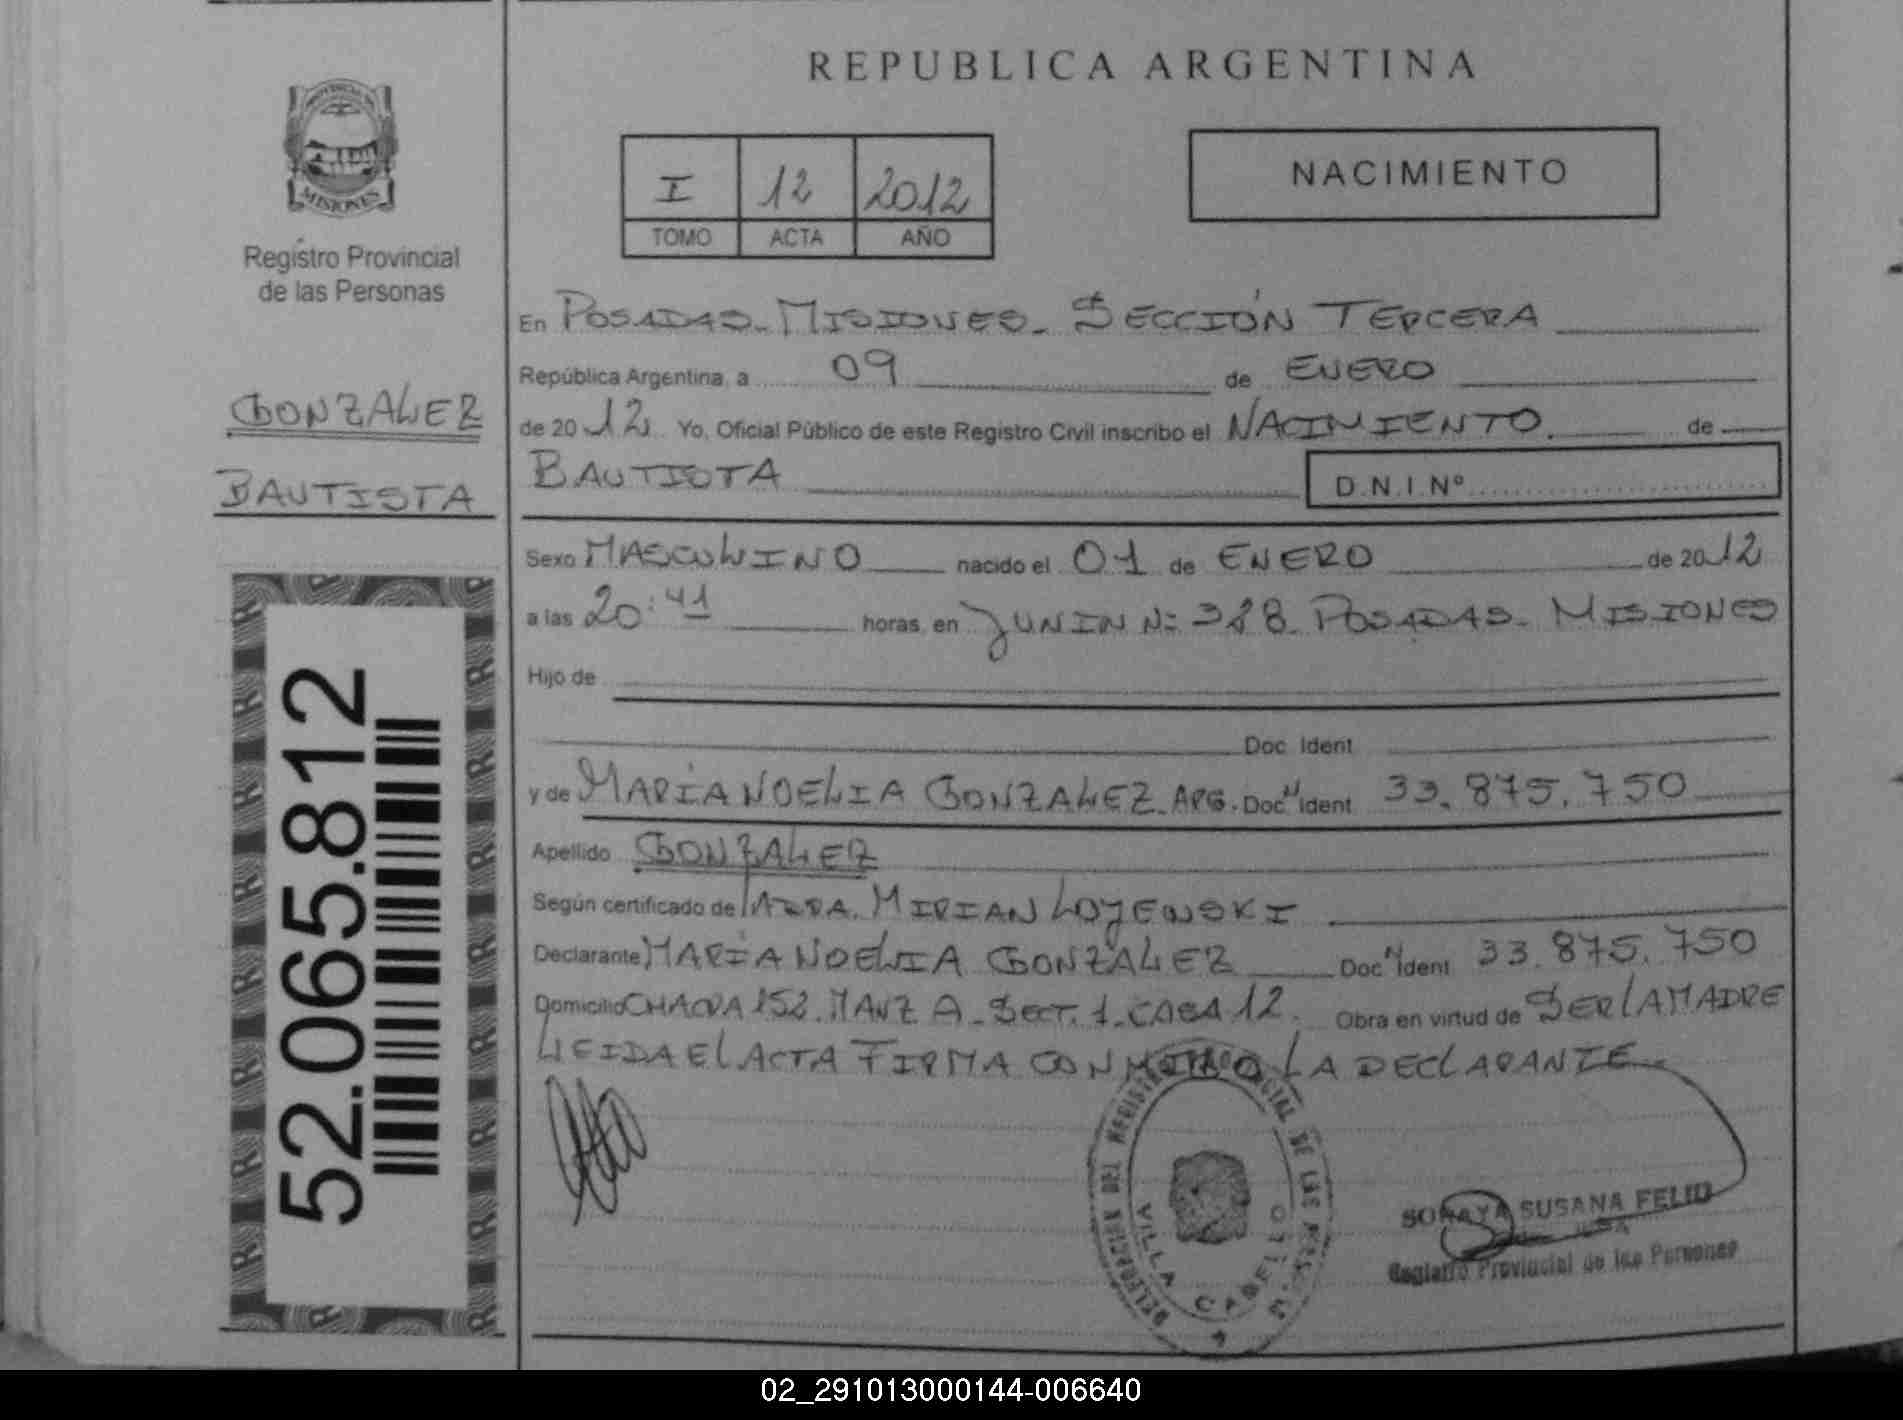 REPUBLICA ARGENTINA
PROVINCIA DE
MISIONES
Registro Provincial
de las Personas
GONZALEZ
BAUTISTA
52.065.812
I 12 2012
TOMO ACTA AÑO
NACIMIENTO
En POSADAS - MISIONES - SECCIÓN TERCERA
República Argentina, a 09 de ENERO
de 2012 Yo, Oficial Público de este Registro Civil inscribo el NACIMIENTO. de
BAUTISTA D.N.I.Nº
Sexo MASCULINO nacido el 01 de ENERO de 2012
a las 20:41 horas, en JUNIN Nº 328. POSADAS - MISIONES
Hijo de
Doc. Ident
y de MARÍA NOELIA GONZALEZ - ARG. Doc. N Ident 33.875.750
Apellido GONZALEZ
Según certificado de MIRIAN LOJEWSKI
Declarante MARÍA NOELIA GONZALEZ Doc. N Ident 33.875.750
Domicilio CHACRA 152. MANZ A - SECT. 1 - CASA 12. Obra en virtud de SER LA MADRE
LEIDA EL ACTA FIRMA CONMIGO LA DECLARANTE
DELEGACION DEL REGISTRO PROVINCIAL DE LAS PERSONAS
VILLA CABELLO
SORAYA SUSANA FELIU
Registro Provincial de las Personas
02_291013000144-006640